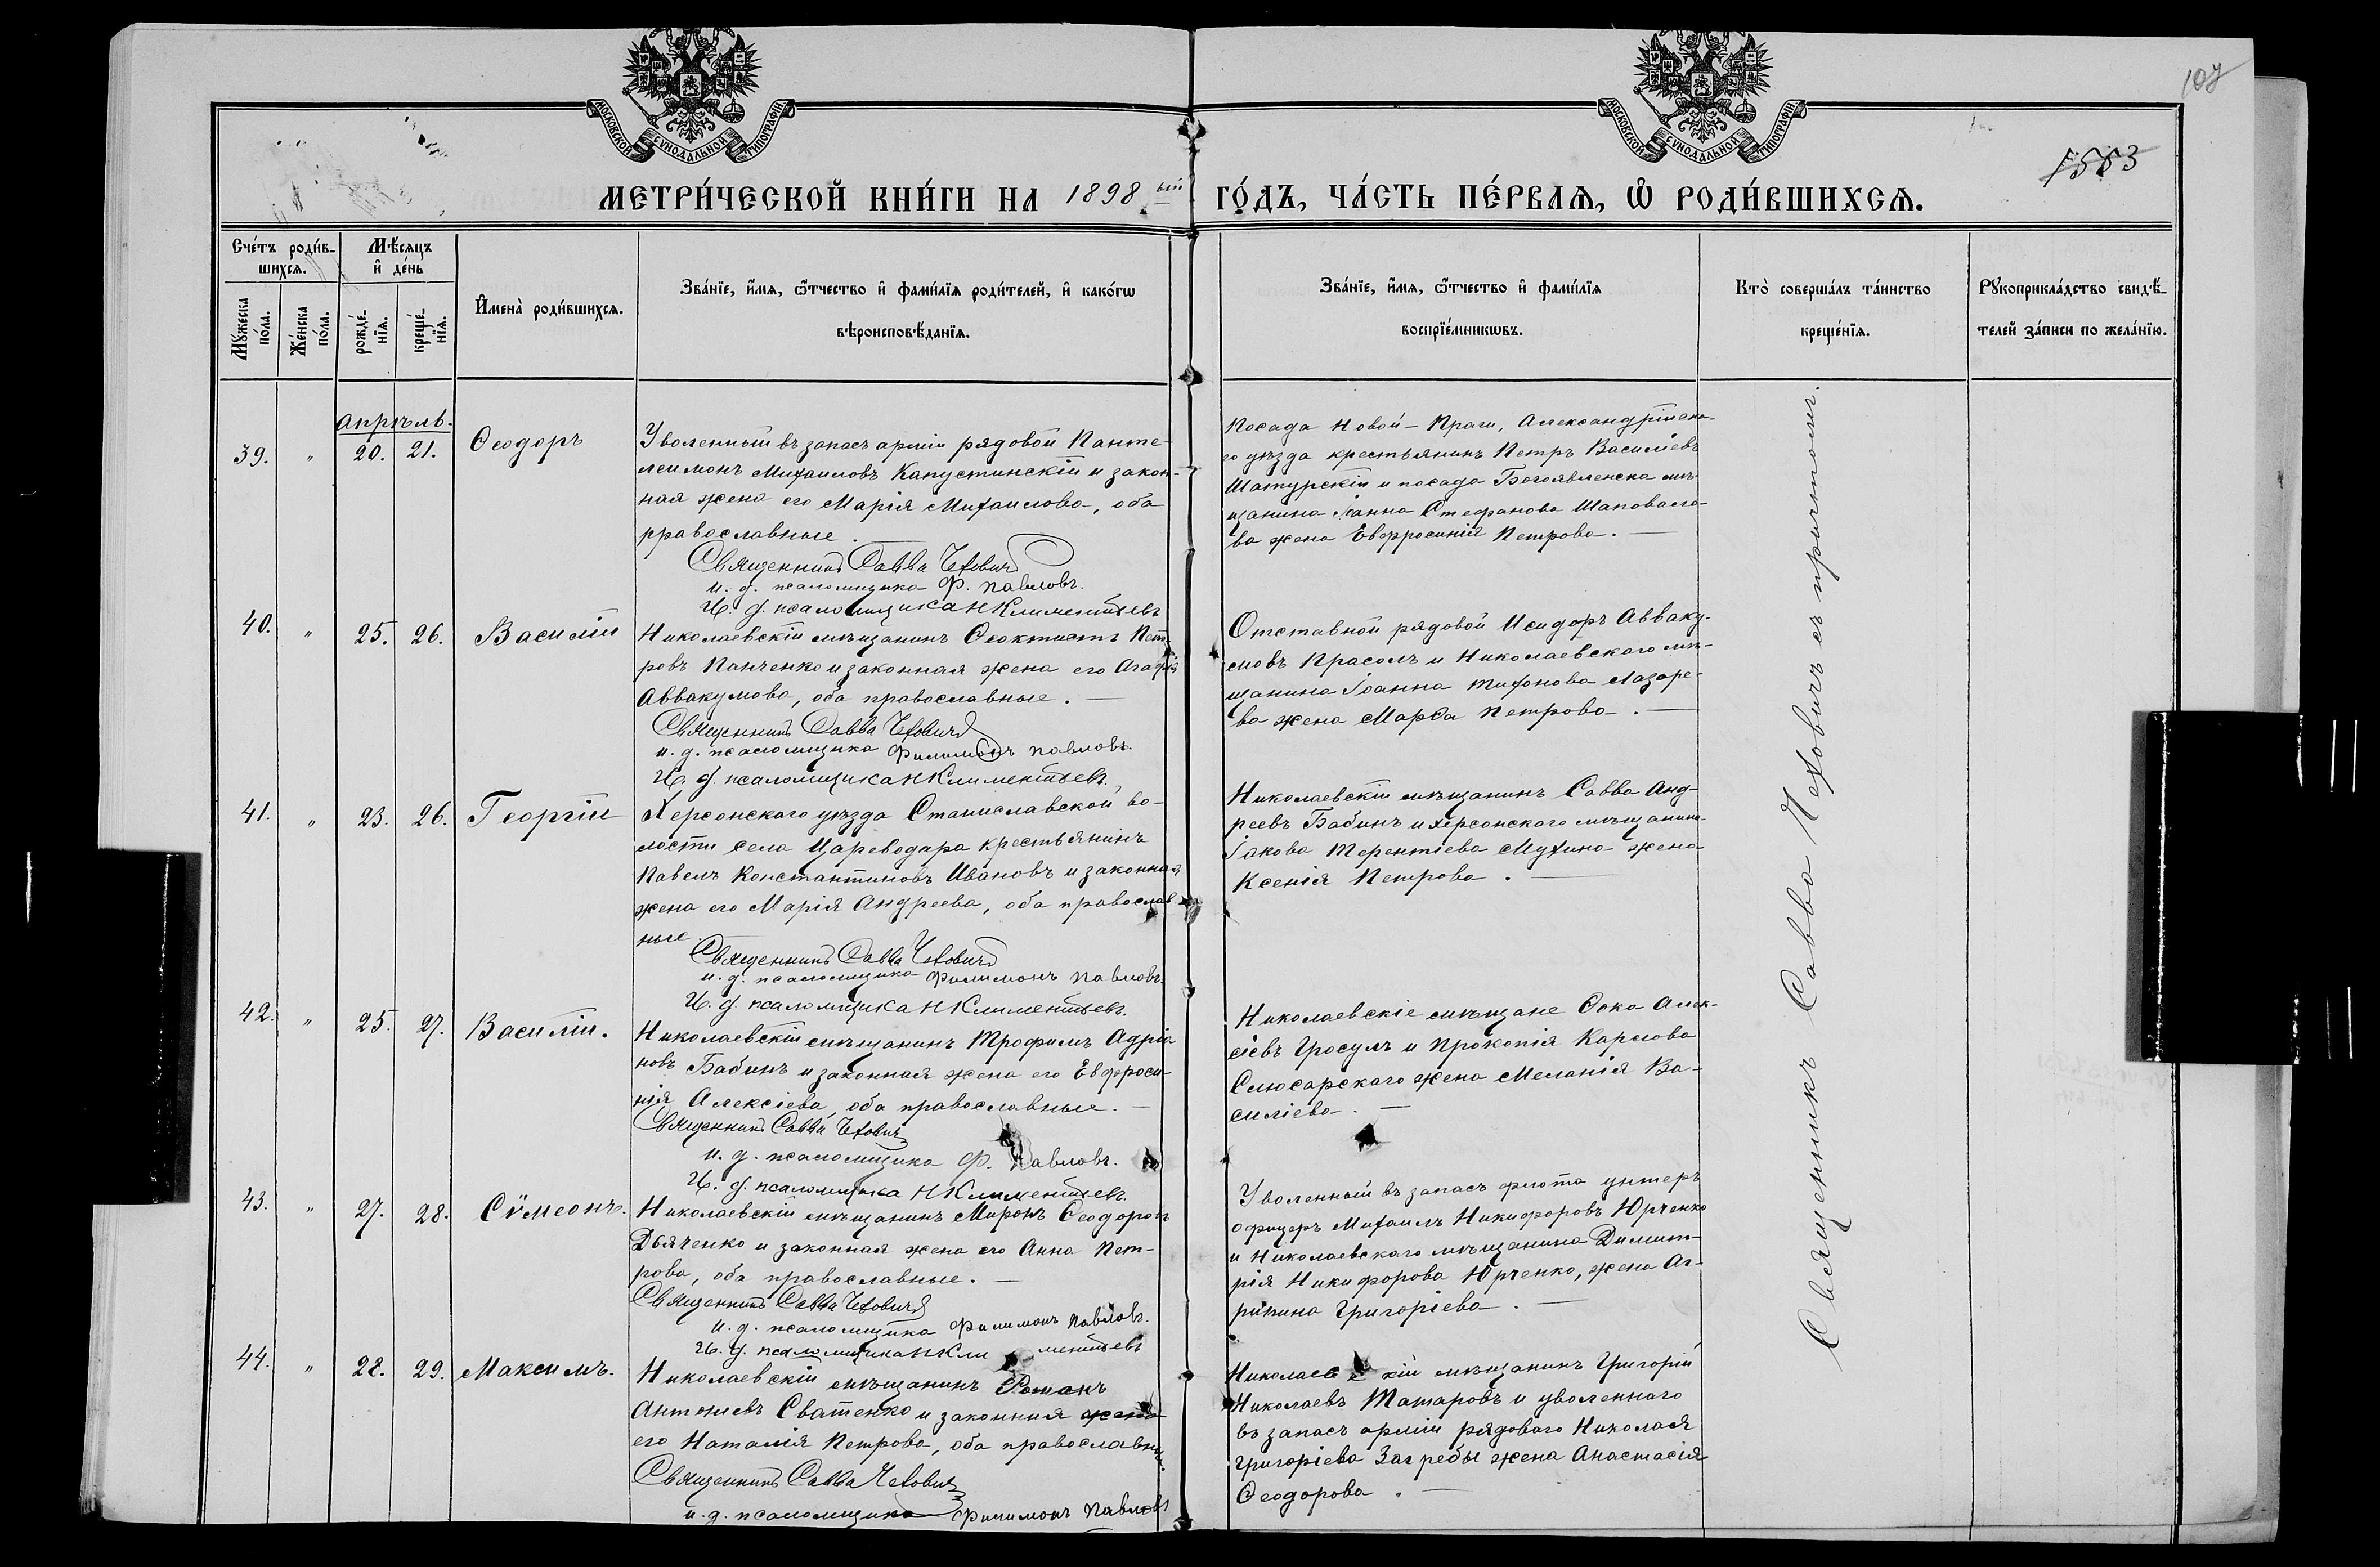 107
1583
МОСКОВСКОЙ СѴНОДАЛЬНОЙ ТИПОГРАФІИ
МОСКОВСКОЙ СѴНОДАЛЬНОЙ ТИПОГРАФІИ
МЕТРИ́ЧЕСКОЙ КНИ́ГИ НА 1898 ый ГО́ДЪ, ЧА́СТЬ ПЕ́РВАЯ, Ѡ РОДИ́ВШИХСЯ.
Сче́тъ роди́в-
шихся.
Му́жеска по́ла.
Же́нска по́ла.
Мѣ́сяцъ и де́нь
рожде́-
нїя.
креще́-
нїя.
И҆мена̀ роди́вшихся.
Зва́нїе, и҆́мя, ѻ҆́тчество и҆ фами́лїя роди́телей, и҆ како́гѡ
вѣроисповѣ́данїя.
Зва́нїе, и҆́мя, ѻ҆́тчество и҆ фами́лїя
воспрїе́мникѡвъ.
Кто̀ соверша́лъ та́инство
креще́нїя.
Рꙋкоприкла́дство свидѣ́-
телей за́писи по жела́нїю.
Апрѣль.
39. " 20. 21. Ѳеодоръ
Уволенный въ запасъ арміи рядовой Панте-
леимонъ Михаиловъ Капустинскій и закон-
ная жена его Марія Михаилова, оба
православные.
Священникъ Савва Чехович
и. д. псаломщика Ф. Павловъ.
И. д. псаломщика Н Климентьевъ
Посада Новой-Праги, Александрійска-
го уѣзда крестьянинъ Петръ Василіевъ
Шатурскій и посада Богоявленска мѣ-
щанина Іанна Стефанова Шаповало-
ва жена Евфросинія Петрова.
40. " 25. 26. Василій
Николаевскій мѣщанинъ Ѳеоктистъ Пет-
ровъ Панченко и законная жена его Агафія
Аввакумова, оба православные.
Священникъ Савва Чехович
и. д. псаломщика Филимонъ Павловъ
И. д. псаломщика Н Климентьевъ
Отставной рядовой Исидоръ Авваку-
мовъ Прасолъ и Николаевского мѣ-
щанина Іоанна Тихонова Лазаре-
ва жена Марѳа Петрова.
41. " 23. 26. Георгій
Херсонского уѣзда Станиславской во-
лости села Цареводара крестьянинъ
Павелъ Константиновъ Ивановъ и законная
жена его Марія Андреева, оба православ-
ные.
Священникъ Савва Чехович
и. д. псаломщика Филимонъ Павловъ.
И. д. псаломщика Н Климентьевъ.
Николаевскій мѣщанинъ Савва Анд-
реевъ Бабинъ и херсонского мѣщанина
Іакова Терентіева Мухина жена
Ксенія Петрова.
42. " 25. 27. Василій.
Николаевскій мѣщанинъ Трофимъ Адріа
новъ Бабинъ и законная жена его Евфроси-
нія Алексіева, оба православные.
Священникъ Савва Чехович
и. д. псаломщика Ф. Павловъ.
И. д. псаломщика Н Климентьевъ
Николаевскіе мѣщане Ѳока Алек-
сіевъ Гросулъ и Прокопія Карпова
Слюсарского жена Меланія Ва-
силіева.
43. " 27. 28. Сѵмеонъ.
Николаевскій мѣщанинъ Миронъ Ѳеодоровъ
Дьяченко и законная жена его Анна Пет-
рова, оба православные.
Священникъ Савва Чехович
и. д. псаломщика Филимонъ Павловъ.
И. д. псаломщика Н Климентьевъ
Уволенный въ запасъ флота унтеръ
офицеръ Михаилъ Никифоровъ Юрченко
и Николаевского мѣщанина Димит-
рія Никифорова Юрченко, жена Аг-
рипина Григоріева.
44. " 28. 29. Максимъ.
Николаевскій мѣщанинъ Романъ
Антоніевъ Сватенко и законная жена
его Наталія Петрова, оба православные.
Священникъ Савва Чехович
и. д. псаломщика Филимонъ Павловъ
Николаевскій мѣщанинъ Григорій
Николаевъ Татаровъ и уволеннаго
въ запасъ арміи рядового Николая
Григоріева Загребы жена Анастасія
Ѳеодорова.
Священникъ Савва Чеховичъ съ причтомъ.